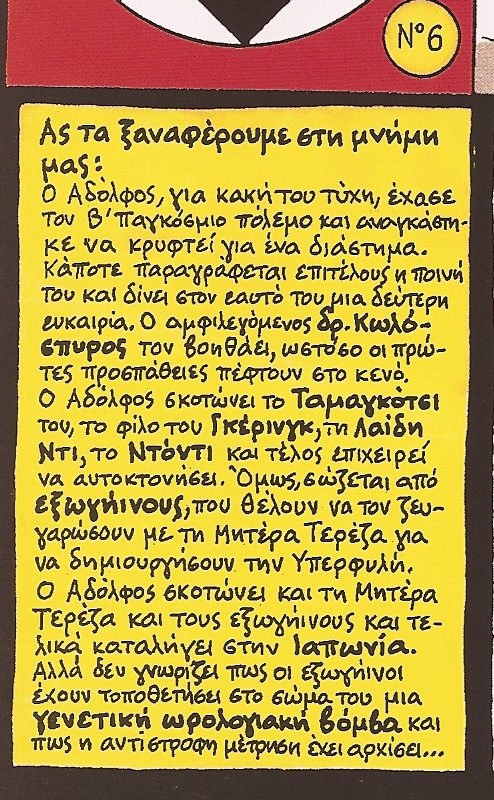 Nº6
Ας τα ξαναφέρουμε στη μνήμη
μας:
Ο Αδόλφος, για κακή του τύχη, έχασε
τον Β' Παγκόσμιο πόλεμο και αναγκάστη-
κε να κρυφτεί για ένα διάστημα.
Κάποτε παραγράφεται επιτέλους η ποινή
του και δίνει στον εαυτό του μια δεύτερη
ευκαιρία. Ο αμφιλεγόμενος δρ. Κωλό-
σπυρος τον βοηθάει, ωστόσο οι πρώ-
τες προσπάθειες πέφτουν στο κενό.
Ο Αδόλφος σκοτώνει το Ταμαγκότσι
του, το φίλο του Γκέρινγκ, τη Λαίδη
Ντι, το Ντόντι και τέλος επιχειρεί
να αυτοκτονήσει. Όμως, σώζεται από
εξωγήινους, που θέλουν να τον ζευ-
γαρώσουν με τη Μητέρα Τερέζα για
να δημιουργήσουν την Υπερφυλή.
Ο Αδόλφος σκοτώνει και τη Μητέρα
Τερέζα και τους εξωγήινους και τε-
λικά καταλήγει στην Ιαπωνία.
Αλλά δεν γνωρίζει πως οι εξωγήινοι
έχουν τοποθετήσει στο σώμα του μια
γενετική ωρολογιακή βόμβα και
πως η αντίστροφη μέτρηση έχει αρχίσει...